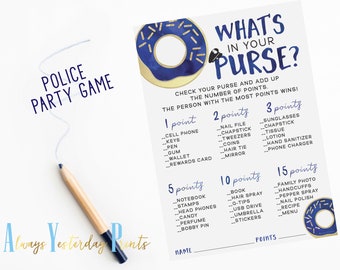 POLICE
PARTY GAME
WHAT'S
IN YOUR
PURSE?
CHECK YOUR PURSE AND ADD UP
THE NUMBER OF POINTS.
THE PERSON WITH THE MOST POINTS WINS!
1 point
__CELL PHONE
__KEYS
__PEN
__GUM
__WALLET
__REWARDS CARD
2 points
__NAIL FILE
__CHAPSTICK
__TWEEZERS
__COINS
__HAIR TIE
__MIRROR
3 points
__SUNGLASSES
__CHAPSTICK
__TISSUE
__LOTION
__HAND SANITIZER
__PHONE CHARGER
5 points
__NOTEBOOK
__STAMPS
__HEAD PHONES
__CANDY
__PERFUME
__BOBBY PIN
10 points
__BOOK
__HAIR SPRAY
__Q-TIPS
__USB DRIVE
__UMBRELLA
__STICKERS
15 points
__FAMILY PHOTO
__HANDCUFFS
__PEPPER SPRAY
__NAIL POLISH
__RECIPE
__MENU
NAME POINTS
Always Yesterday Prints